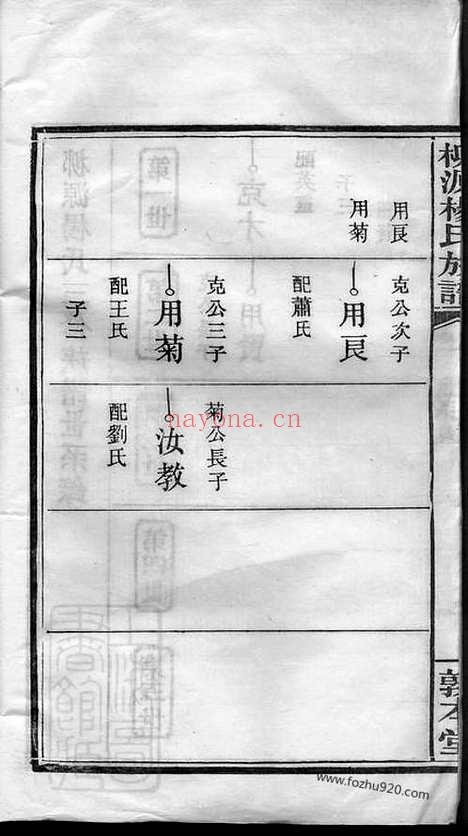 柳源楊氏族譜
敦本堂
用良
用菊
克公次子
用良
配蕭氏
克公三子
用菊
配王氏
子三
菊公長子
汝教
配劉氏
nayona.cn
www.fozhu920.com